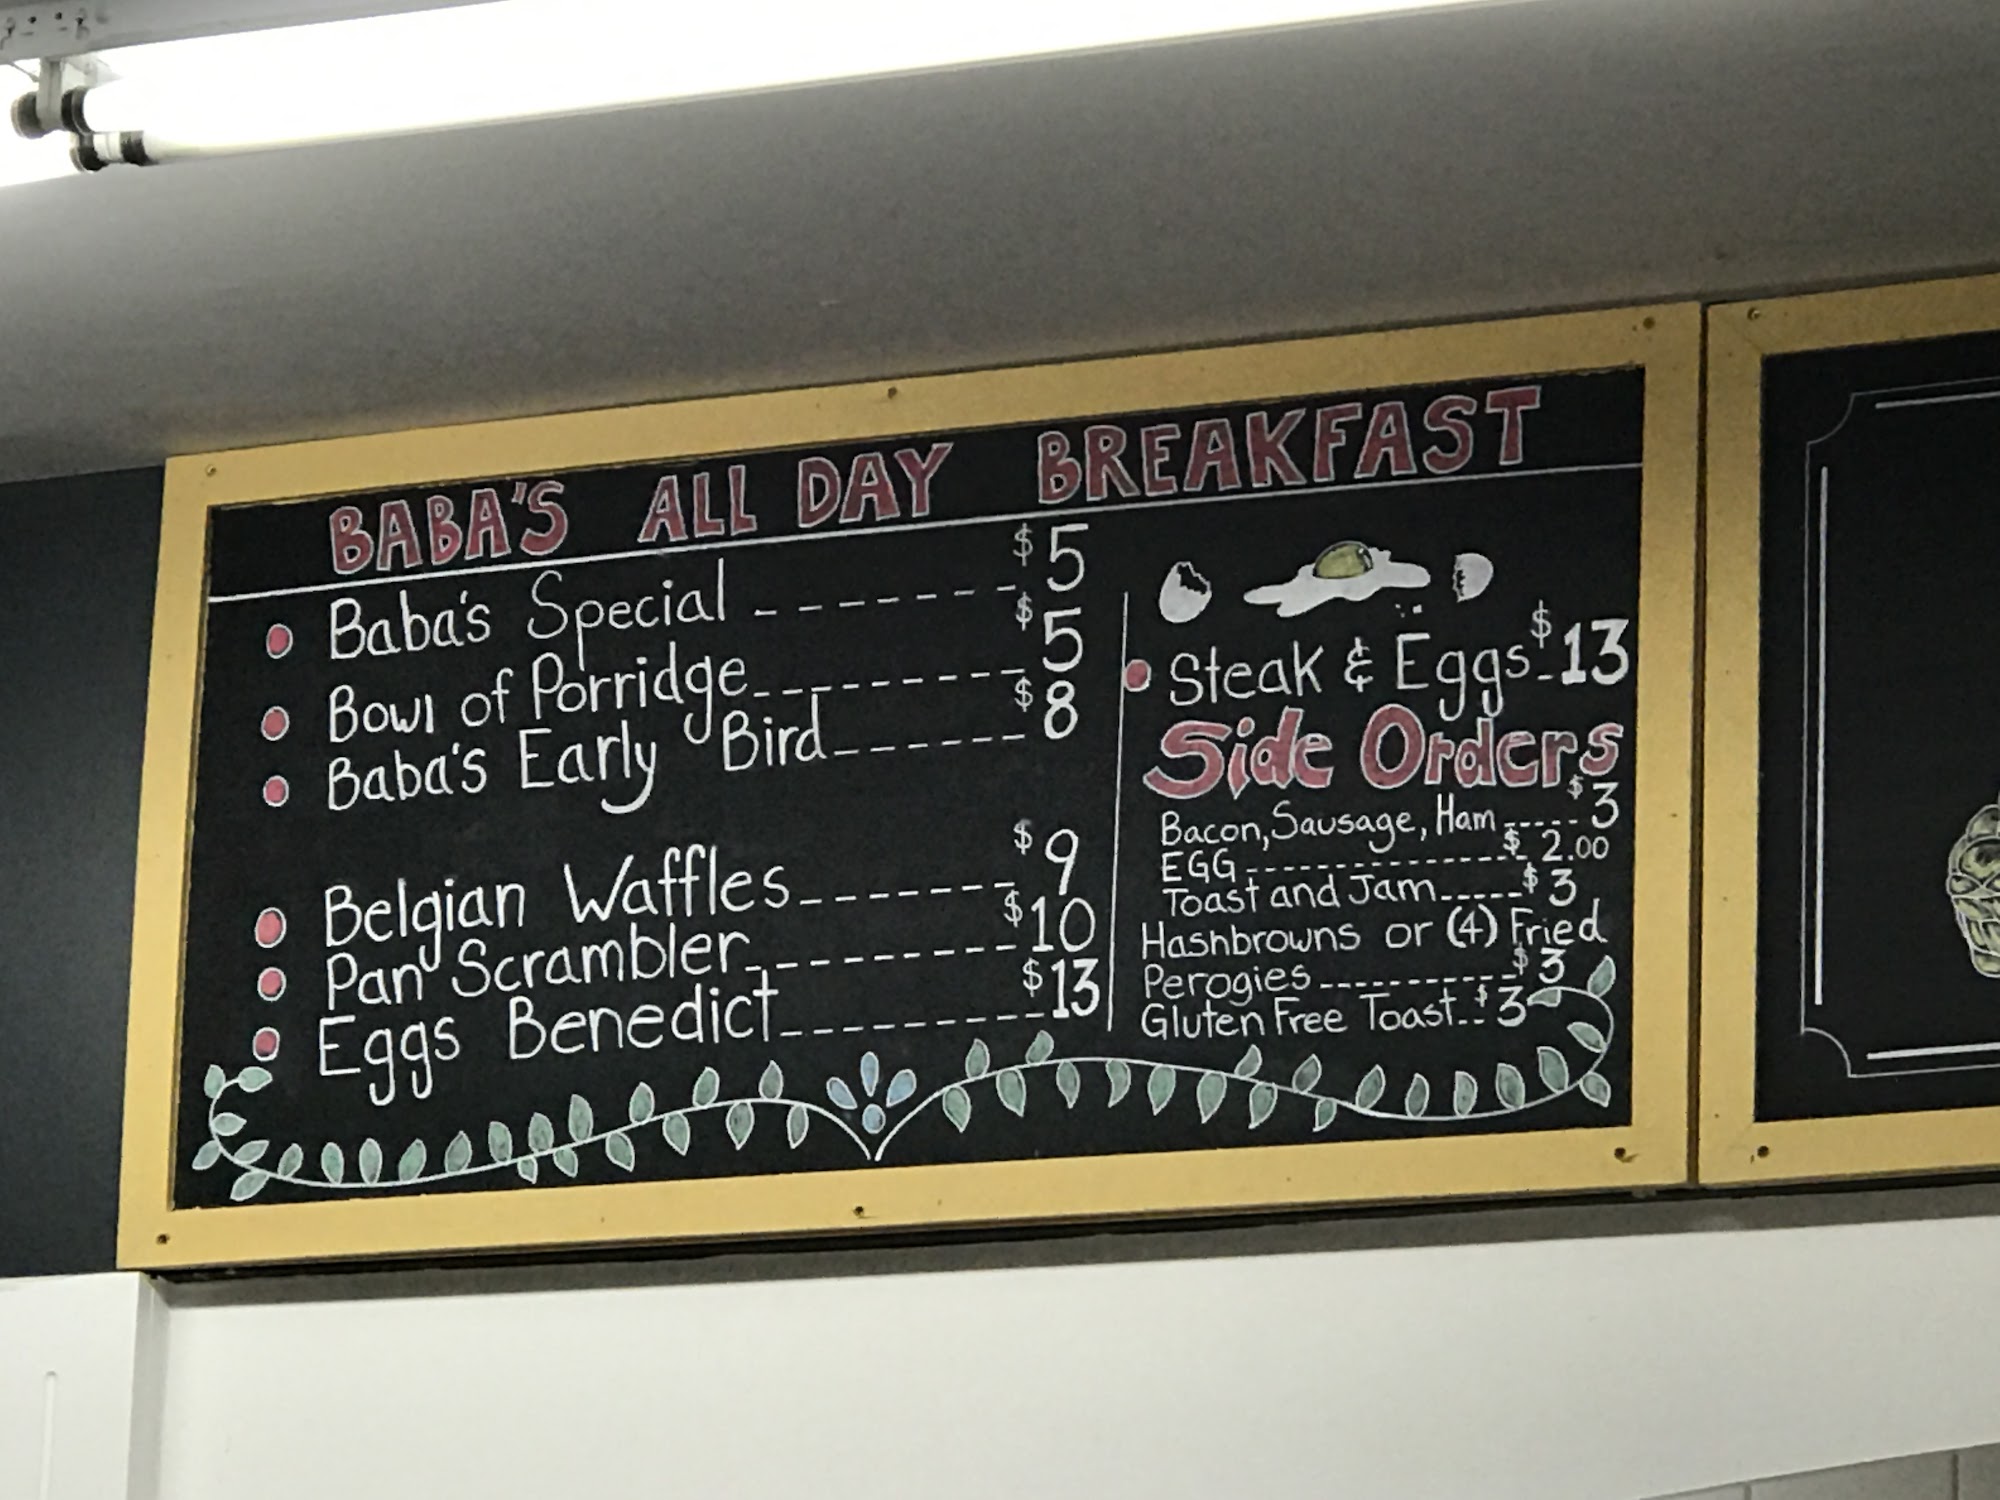 BABA'S ALL DAY BREAKFAST
Baba's Special ------- $5
Bowl of Porridge--------- $5
Baba's Early Bird------ $8
Belgian Waffles------- $9
Pan Scrambler--------- $10
Eggs Benedict--------- $13
Steak & Eggs-$13
Side Orders
Bacon, Sausage, Ham----- $3
EGG---------------$ 2.00
Toast and Jam-----$3
Hashbrowns or (4) Fried
Perogies----------$3
Gluten Free Toast--$3